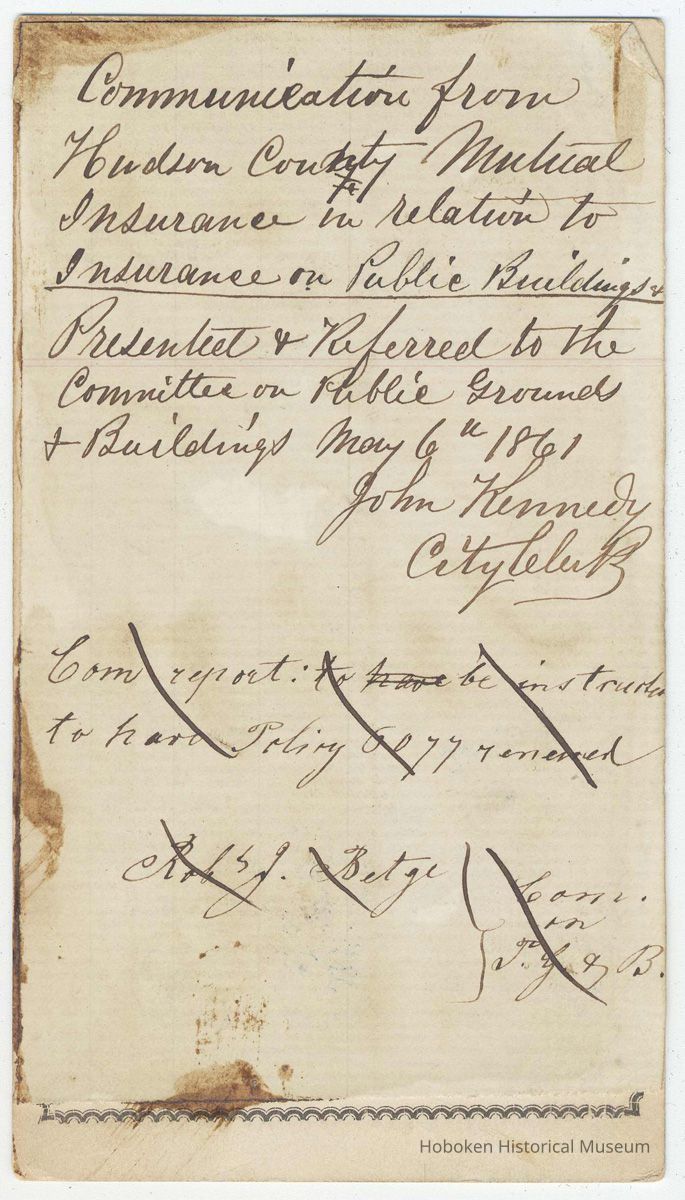 Communication from
Hudson County Mutual
Insurance in relation to
Insurance on Public Buildings &
Presented & Referred to the
Committee on Public Grounds
& Buildings May 6th 1861
John Kennedy
City Clerk
Com report: to have be instructed
to have Policy 6077 renewed
Robt J. Betge
Com.
on
P. G. & B.
Hoboken Historical Museum